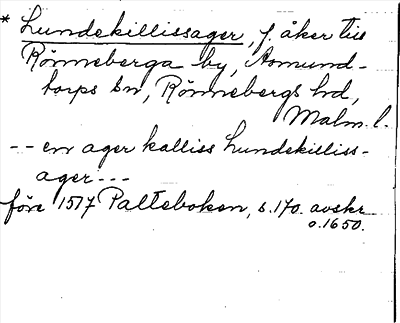 * Lundekillissager, f. åker till
Rönneberga by, Asmund-
torps sn, Rönnebergs hd,
Malm. l.
-- en ager kalliss Lundekilliss-
ager ---
före 1517 Palteboken, s. 170. avskr
o. 1650.